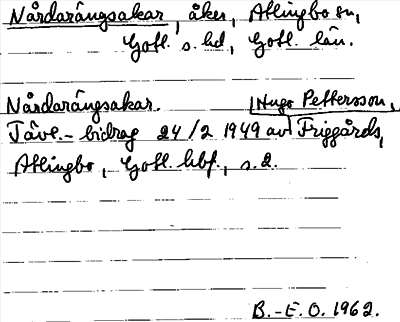 Nårdarängsakar, åker, Atlingbo sn,
Gotl. s. hd, Gotl. län.
Nårdarängsakar. Hugo Pettersson,
Tävl.- bidrag 24/2 1949 av Friggårds,
Atlingbo, Gotl. hbf., s. 2.
B.-E. O. 1962.